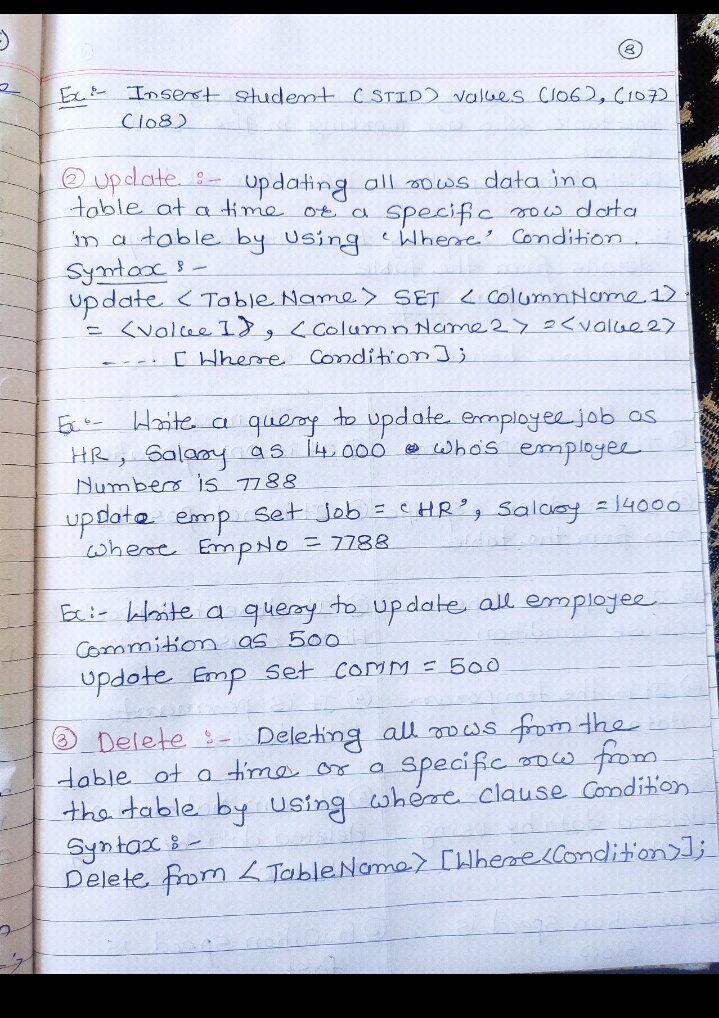 8
Ex:- Insert student (STID) values (106), (107)
(108)
② Update :- Updating all rows data in a
table at a time or a specific row data
in a table by using 'Where' Condition.
Syntax :-
Update <Table Name> SET <ColumnName 1>
= <Value 1>, <Column Name 2> = <value 2>
---- [Where Condition];
Ex:- Write a query to update employee job as
HR, Salary as 14,000 who's employee
Number is 7788
update emp set Job = 'HR', Salary = 14000
where EmpNo = 7788
Ex:- Write a query to update all employee
Commition as 500
Update Emp set COMM = 500
③ Delete :- Deleting all rows from the
table at a time or a specific row from
the table by using where clause Condition
Syntax :-
Delete from <TableName> [Where<Condition>];